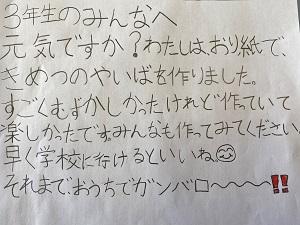 3年生のみんなへ
元気ですか?わたしは、おり紙で、
きめつのやいばを作りました。
すごくむずかしかったけれど作っていて
楽しかったです。みんなも作ってみてください
早く学校に行けるといいね。😊
それまで、おうちでガンバロ〜〜〜〜‼